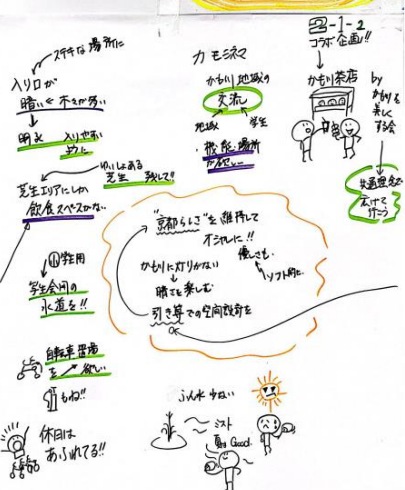 ステキな場所に
入り口が
暗い ← 木々が多い
↓
明るく 入りやすい
ように
ゆいしょある
芝生 残して!!
芝生エリアにしか
飲食スペースがない
㋛学生用
学生会用の
水道を!!
自転車置場
を 欲しい
もね!!
休日は
あふれてる!!
カモシネマ
かもり地域の
交流
地域 学生
・機能・場所
が欲しい
2-1-2
コラボ企画!!
かもり茶店
by
かもりを
美しく
する会
共通理念で
広げて
行こう
"京都らしさ"を維持して
オシャレに!!
優しさも、
ソフト的に
かもりに灯りがない
↓
暗さを楽しむ
引き算での空間設計を
ふん水 少ない
ミスト
Good.